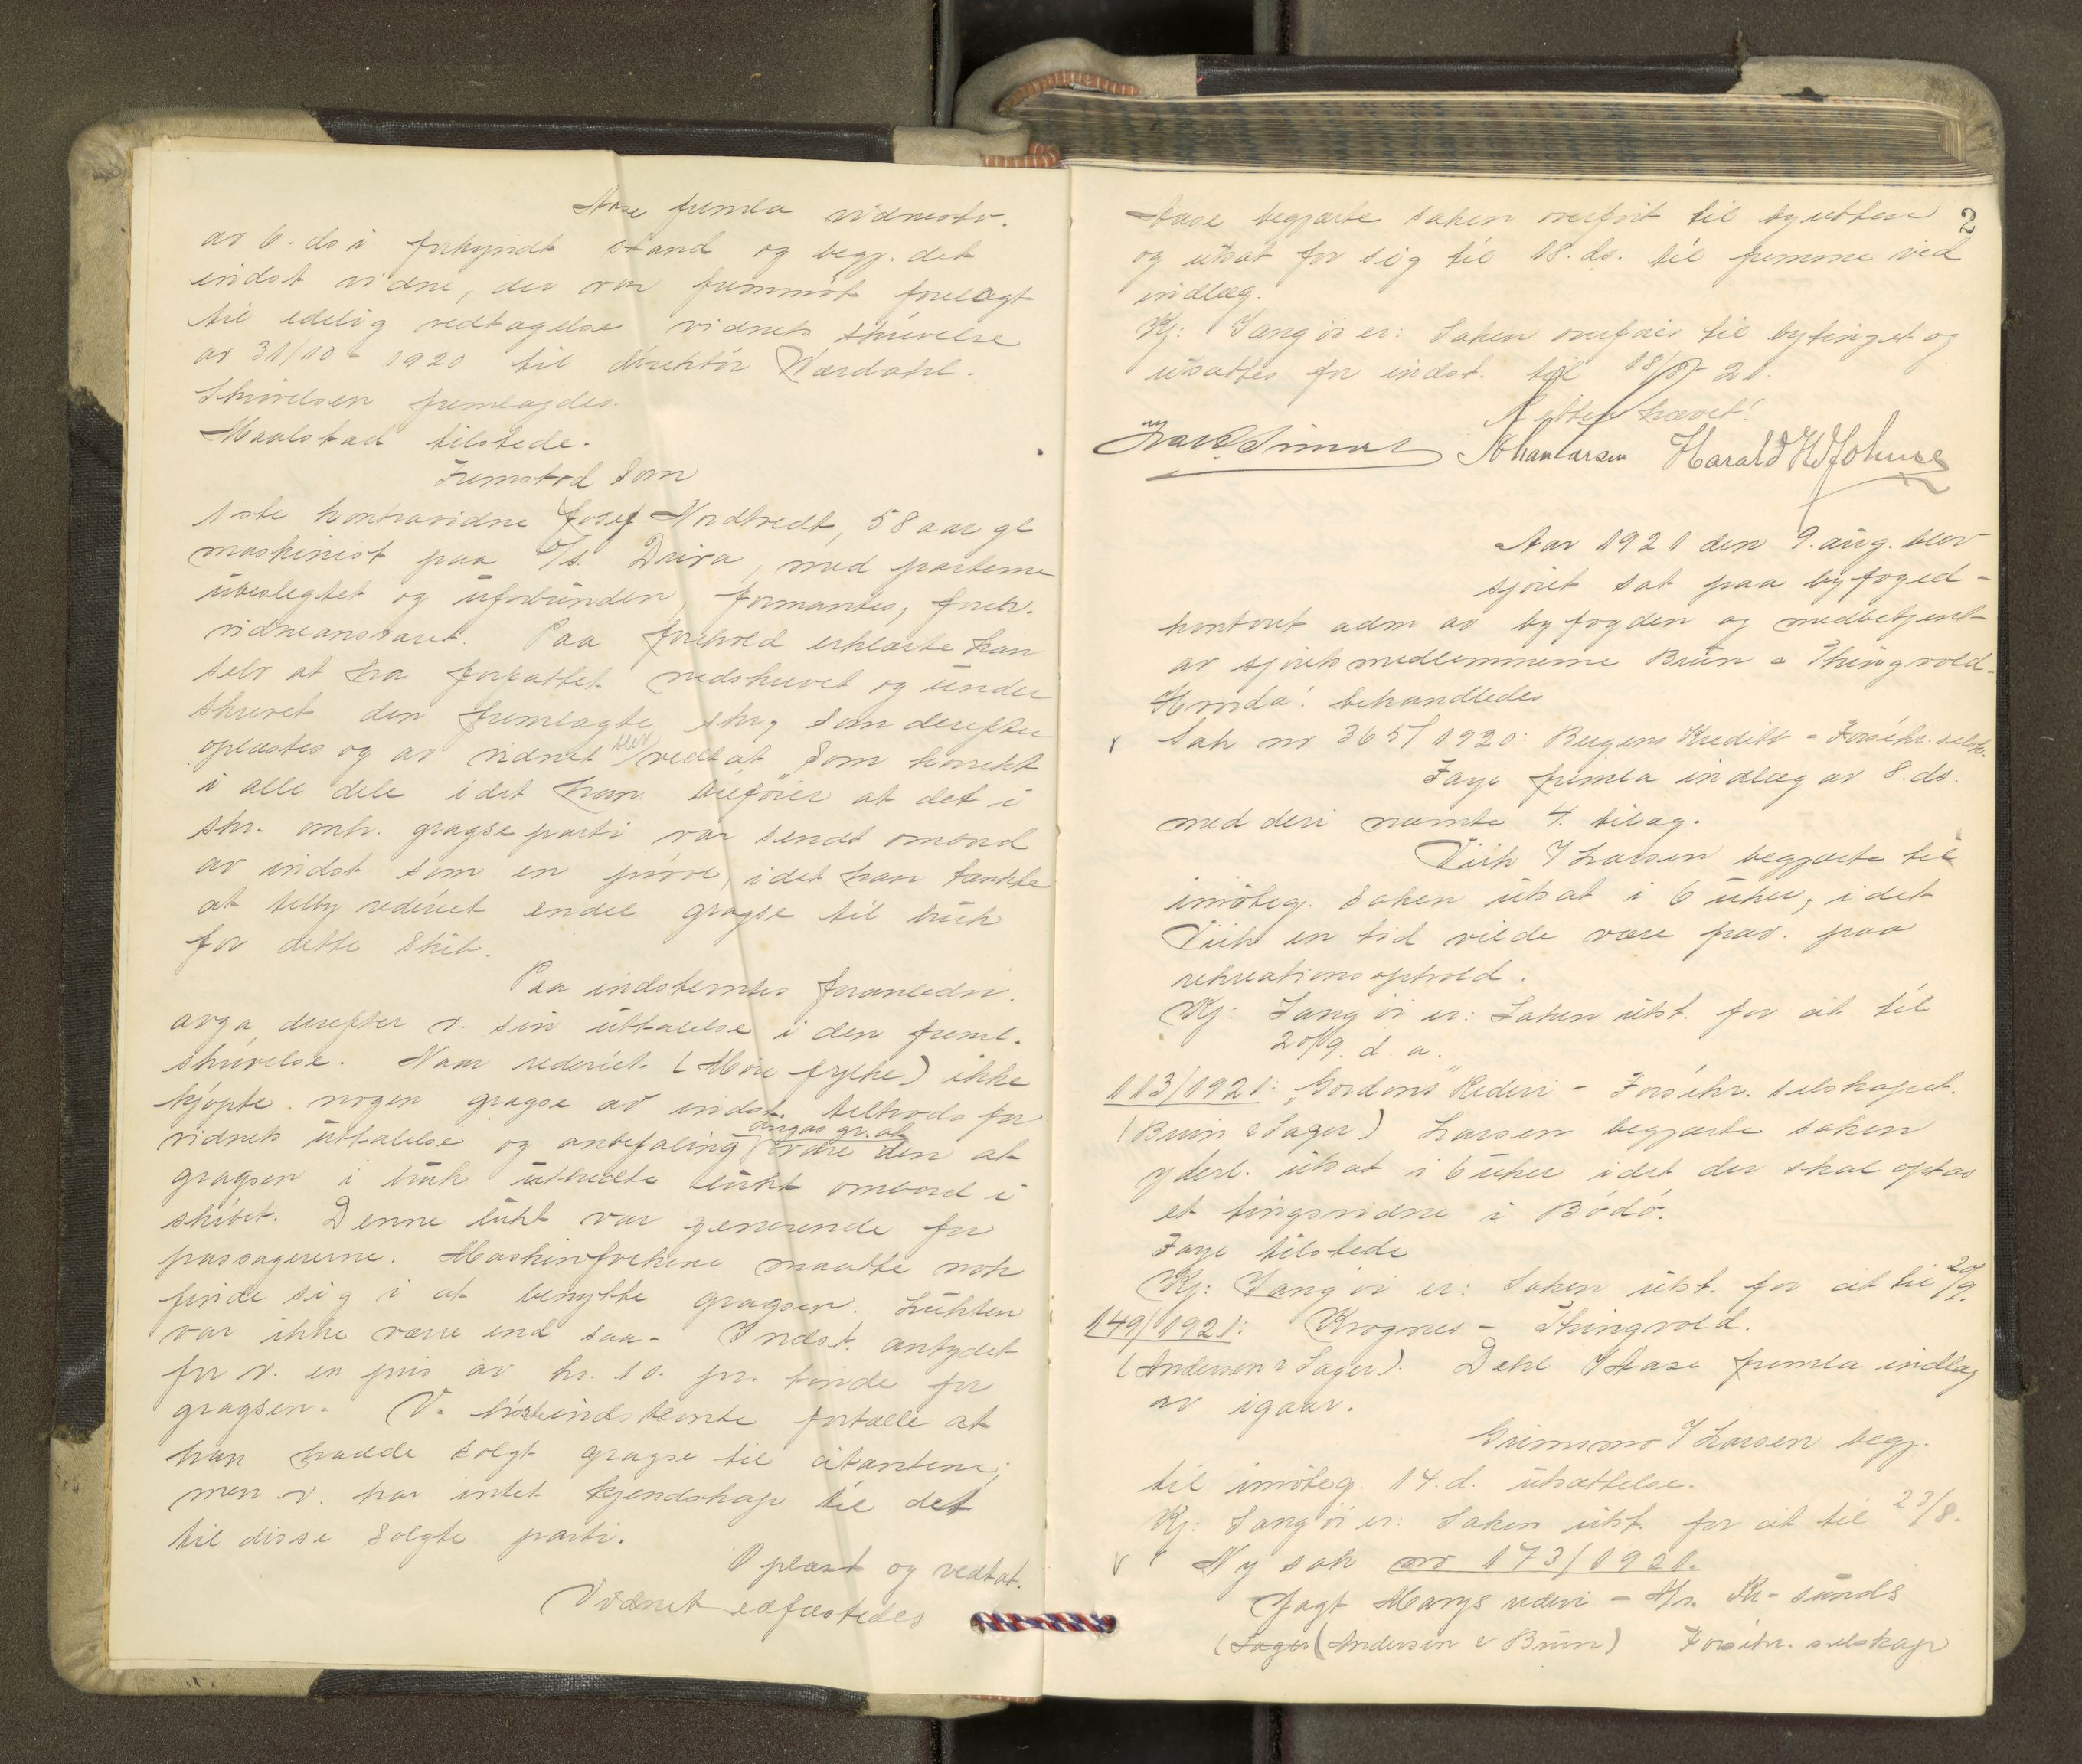 Aase fremla vidnestv.
av 6. ds i forkyndt stand og begj. det
indst vidne, der var fremmöt forelagt
til edelig vedtagelse vidnets skrivelse
av 31/10 - 1920 til direktör Værdahl.
Skrivelsen fremlagdes.
Maalstad tilstede.
Fremstod som
1ste kontravidne Josef Nordtvedt, 58 aar gl
maskinist paa D/s. Driva, med parterne
ubeslegtet og uforbunden, formantes, foreh.
vidneansvaret. Paa forehold erklærte han
selv at ha forfattet nedskrevet og under
skrevet den fremlagte skr, som derefter
oplæstes og av vidnet blev vedtat som korrekt
i alle dele idet han tilföier at det i
skr. omh. gragseparti var sendt ombord
av indst som en pröve, idet han tænkte
at tilby rederiet endel gragse til bruk
for dette skib.
Paa indstevntes foranledn.
avga derefter v. sin uttalelse i den freml.
skrivelse. Naar rederiet (Möre fylke) ikke
kjöpte nogen gragse av indst. tiltrods for
vidnets uttalelse og anbefaling var den at
gragsen i bruk utbredte lukt ombord i
skibet. Denne lukt var generende for
passagererne. Maskinfolkene maatte nok
finde sig i at benytte gragsen. Lukten
var ikke værre end saa. Indst. antydet
for v. en pris av kr. 10. pr. tönde for
gragsen. V. hörte indstevnte fortælle at
han hadde solgt gragse til citantene;
men v. har intet kjendskap til det
til disse solgte parti.
Oplæst og vedtat.
Vidnet edfæstedes
2
Aase begjærte saken overfört til byretten
og utsat for sig til 18. ds. til fremme ved
indlæg.
Kj: Sang ör er: Saken overföres til bytinget og
utsættes for indst. til 18/8 - 21.
Retten hævet!
Johan Larsen Harald H Johnsen
Aar 1921 den 9. aug. blev
sjöret sat paa byfoged-
kontoret adm av byfogden og medbetjent
av sjöretsmedlemmerne Bruun & Thingvold.
Hvorda! behandledes
Sak nr 365/1920: Bergens Kreditb - Forsikr. selsk.
Faye fremla indlæg av 8. ds.
med deri nævnte 4. bilag.
Piih f Larsen begjærte til
imöteg. saken utsat i 6 uker, idet
Piih en tid vilde være frav. paa
rekreationsophold.
Kj: Sang ör er: Saken utst. for cit til
20/9. d. a.
113/1921: "Gordons" Rederi - Forsikr. selskapet.
(Bruun & Sager) Larsen begjærte saken
yderl. utsat i 6 uker idet der skal optas
et tingsvidne i Bodö.
Faye tilstede
Kj: Sang ör er: Saken utst. for cit til 20/9.
149/1921: Krognes - Thingvold.
(Andersen & Sager). Dahl f Aase fremla indlæg
av igaar.
Grimmo f Larsen begj.
til imöteg. 14. d. utsættelse.
Kj: Sang ör er: Saken utst. for cit til 23/8.
Ny sak nr 173/1921.
Jagt Marys rederi - A/s. Kr-sunds
(Sager (Andersen & Bruun) Forsikr. selskap